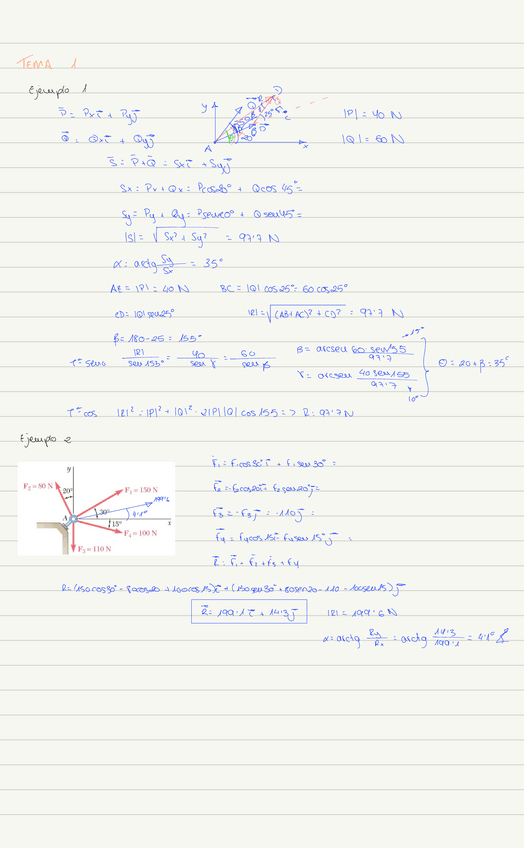 TEMA 1
Ejemplo 1
P̄ = Pxī + Pyj̄
|P| = 40 N
Q̄ = Qxī + Qyj̄
|Q| = 60 N
y
x
A
S̄ = P̄ + Q̄ = Sxī + Syj̄
Sx = Px + Qx = Pcos20° + Qcos 45° =
Sy = Py + Qy = Psen20° + Qsen45° =
|S| = √Sx² + Sy² = 97'7 N
α = arctg Sy/Sx = 35°
AB = |P| = 40 N BC = |Q| cos 25° = 60 cos 25°
CD = |Q| sen 25° |R| = √(AB+AC)² + CD² = 97'7 N
β = 180 - 25 = 155°
Tª seno |R|/sen 155° = 40/sen γ = 60/sen β
β = arcsen 60·sen155/97'7 15°
γ = arcsen 40sen155/97'7 10°
θ = 20 + β = 35°
Tª cos |R|² = |P|² + |Q|² - 2|P||Q| cos 155 => R = 97'7 N
Ejemplo 2
F₂ = 80 N
y
20°
F₁ = 150 N
199'6
30°
4'1°
A
x
15°
F₄ = 100 N
F₃ = 110 N
F̄₁ = F₁cos30°ī + F₁sen30° =
F̄₂ = -F₂cos20ī + F₂sen20°j̄ =
F̄₃ = -F₃j̄ = -110j̄ =
F̄₄ = F₄cos 15ī - F₄sen 15°j̄ =
R̄ = F̄₁ + F̄₂ + F̄₃ + F₄
R = (150cos30 - 80cos20 + 100cos15)ī + (150sen30 + 80sen20 - 110 - 100sen15)j̄
R̄ = 199'1ī + 14'3j̄ |R| = 199'6 N
α = arctg Ry/Rx = arctg 14'3/199'1 = 4'1°